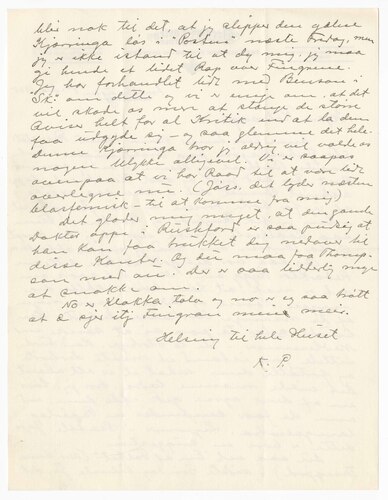 blir nok til det, at jeg slipper den gamle
Kjæringa løs i "Posten" næste Fredag, men
jeg er ikke istand til at dy mig. jeg maa
gi hende et lidet Rap over Fingrene.
Jeg har forhandlet lidt med Benson i
Ski om dette og vi er enige om, at det
vil skade os mere at stænge de store
Aviser helt for al Kritik end at la den
faa udgyde sig – og saa glemme det hele.
Denne Kjæringa tror jeg aldrig vil volde os
nogen Ulykke alligevel. Vi er saapas
ovenpaa at vi har Raad til at være lidt
overlegne nu. (Jøss, det lyder næsten
blasfemisk – til at komme fra mig)
Det glæder mig meget, at den gamle
Doktor oppe i Rushford er saa prægtig at
han kan faa trukket dig nedover til
disse Kanter. Og du maa faa Thomp-
son med dig. Der er saa lidterlig mye
at snakke om.
No er Klokka tolv og no er eg saa trøtt
at eg sjer itj Fingran mine meir.
Helsing til hele Huset
K. P.